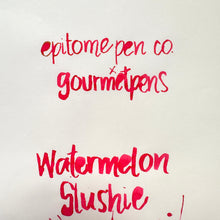 epitome pen co.
x
gourmetpens
Watermelon
Slushie